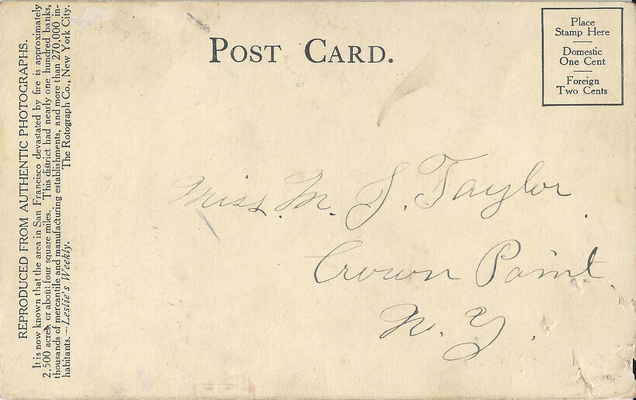 REPRODUCED FROM AUTHENTIC PHOTOGRAPHS.
It is now known that the area in San Francisco devastated by fire is approximately
2,500 acres, or about four square miles. This district had nearly one hundred banks,
thousands of mercantile and manufacturing establishments, and more than 270,000 in-
habitants.—Leslie's Weekly. The Rotograph Co., New York City.
POST CARD.
Place
Stamp Here
Domestic
One Cent
Foreign
Two Cents
Miss. M. J. Taylor
Crown Point
N. Y.